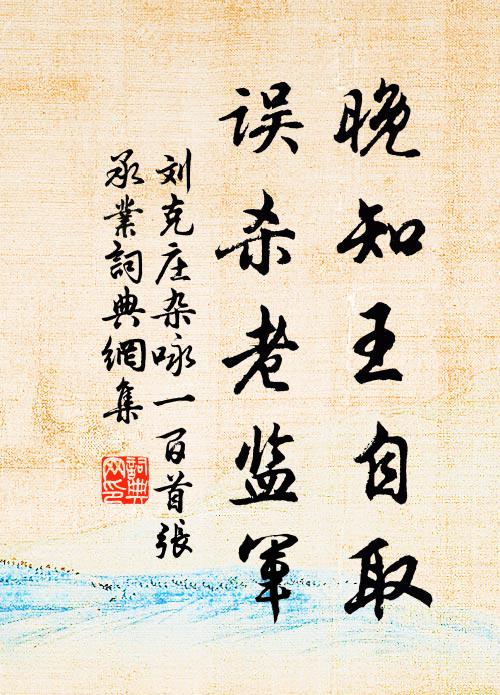 晚知王自取
误杀老监军
刘克庄杂咏一百首张
承业詞典網集
詞典网印